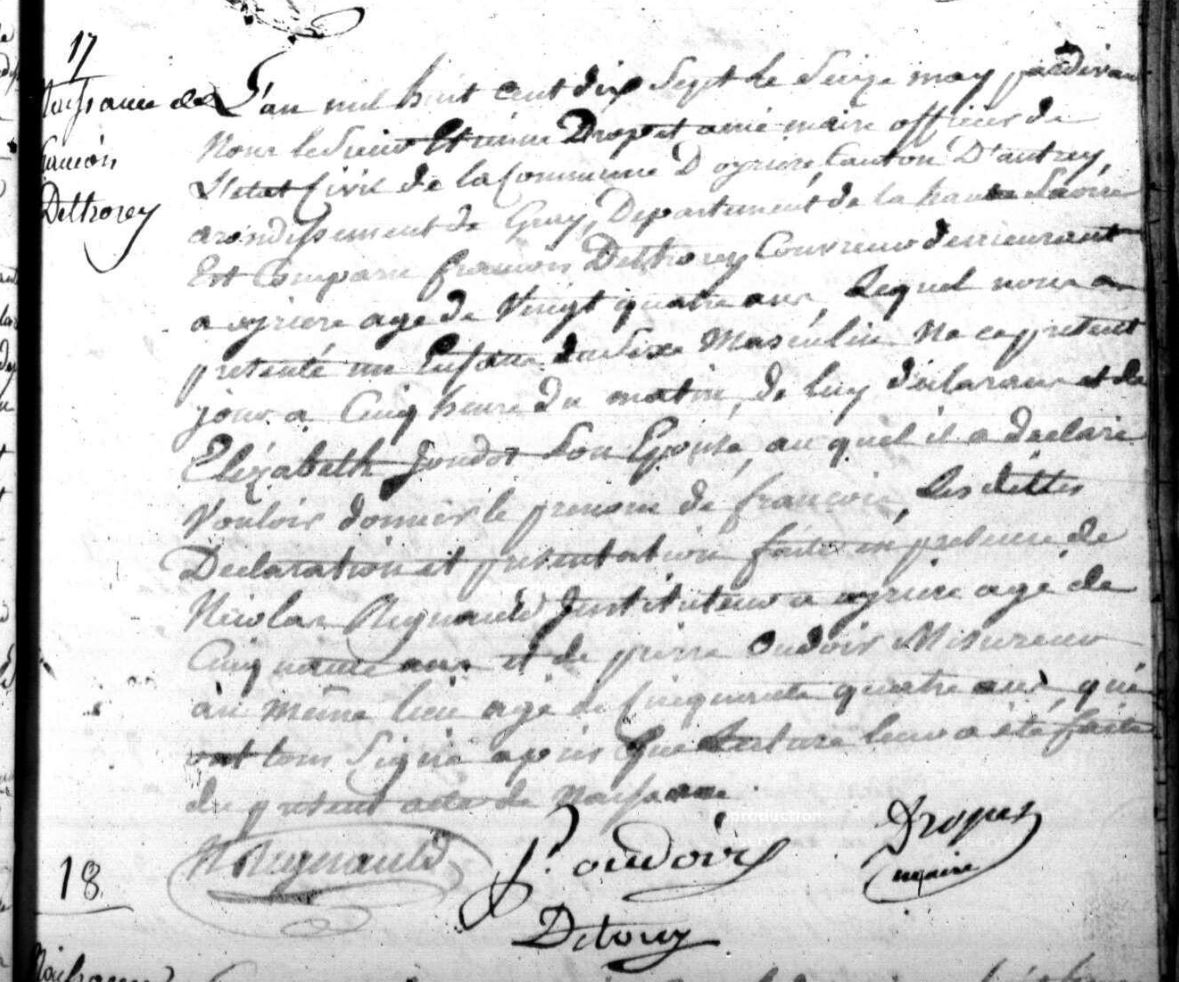 17
Naissance de
francois
Delhorey
L'an mil huit cent dix Sept le Seize may pardevan
Nous le Sieur Etienne Dropet maire officier de
L'etat Civil de la Commune D'oyriere, Canton D'autrey,
arondissement de Gray, Departement de la haute Saône
Est Comparu francois Delhorey Couvreur demeurant
a oyriere age de Vingt quatre ans, Lequel nous a
presenté un Enfant du Sexe Masculin Ne ce present
jour a Cinq heure du matin, de luy declarant et de
Elizabeth Jondot Son Epouse, au quel il a declaré
Vouloir donner le prenom de francois, Les dittes
Declaration et presentation faite en presence de
Nicolas Regnauld Instituteur a oyriere agé de
Cinquante ans et de pierre Oudoir Mesureur
au même lieu agé de Cinquante quatre ans qui
ont tous Signé apres Que Lecture leur a été faite
du present acte de Naissance
production
N Regnauld P. oudoir Dropet
maire
Detouy
18
Naissance